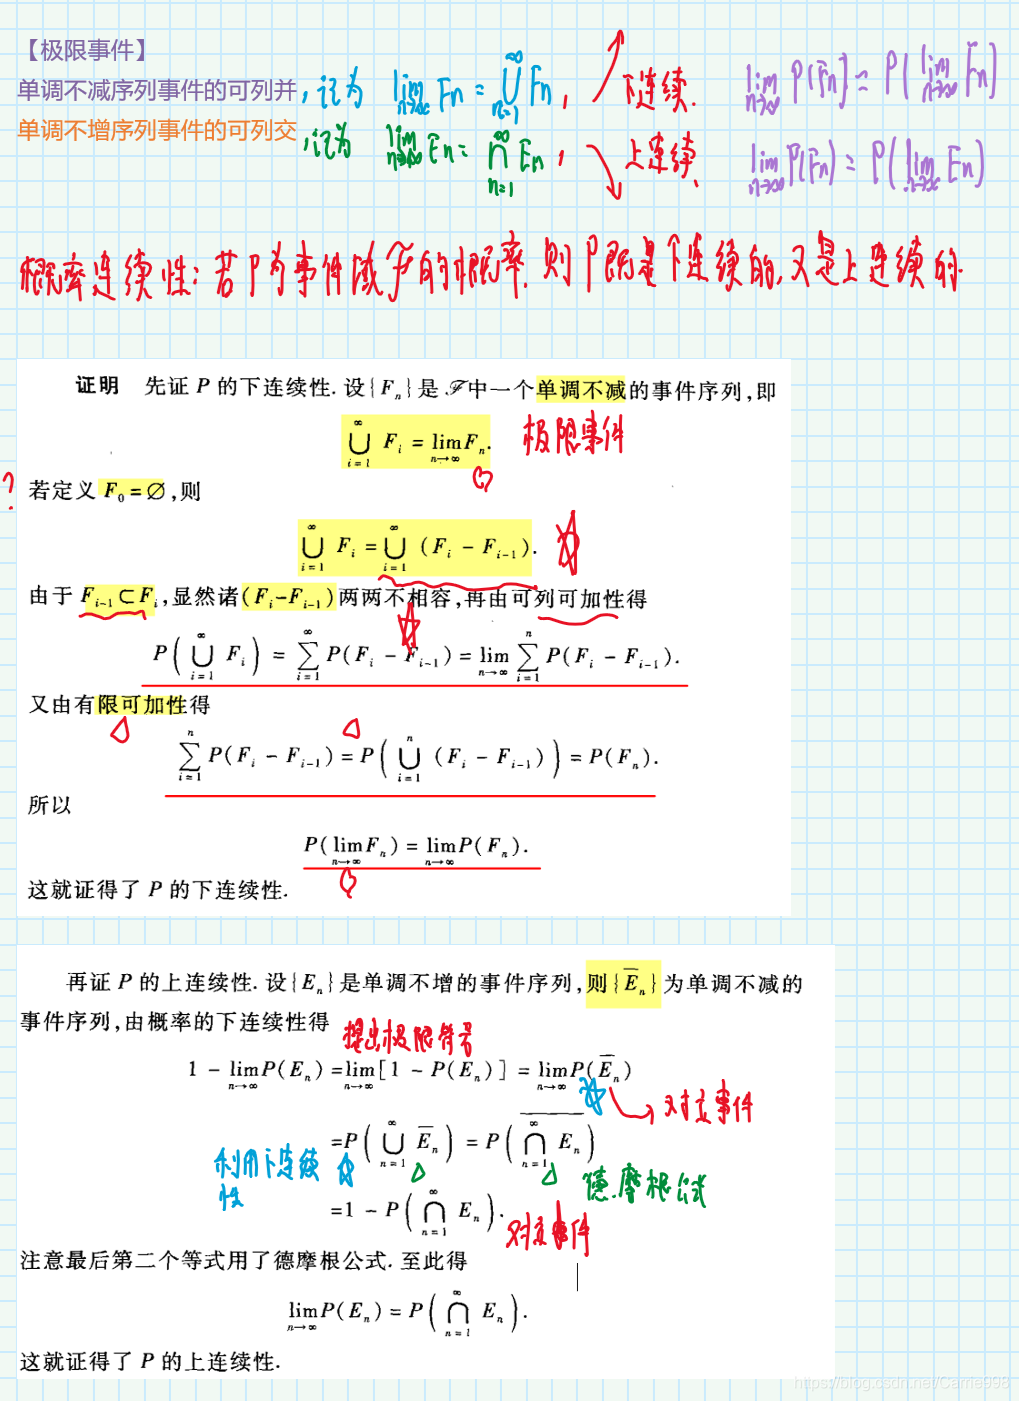 【极限事件】
单调不减序列事件的可列并，记为 lim_{n→∞} Fn = ⋃_{n=1}^{∞} Fn， 下连续. lim_{n→∞} P(Fn) = P(lim_{n→∞} Fn)
单调不增序列事件的可列交，记为 lim_{n→∞} En = ⋂_{n=1}^{∞} En， 上连续. lim_{n→∞} P(Fn) = P(lim_{n→∞} En)
概率连续性：若P为事件域ℱ的概率，则P既是下连续的，又是上连续的.
证明 先证 P 的下连续性. 设{F_n}是 ℱ 中一个单调不减的事件序列,即
⋃_{i=1}^{∞} F_i = lim_{n→∞} F_n. 极限事件
? 若定义 F_0 = ∅,则
⋃_{i=1}^{∞} F_i = ⋃_{i=1}^{∞} (F_i − F_{i−1}).
由于 F_{i−1} ⊂ F_i,显然诸(F_i − F_{i−1})两两不相容,再由可列可加性得
P(⋃_{i=1}^{∞} F_i) = ∑_{i=1}^{∞} P(F_i − F_{i−1}) = lim_{n→∞} ∑_{i=1}^{n} P(F_i − F_{i−1}).
又由有限可加性得
∑_{i=1}^{n} P(F_i − F_{i−1}) = P(⋃_{i=1}^{n} (F_i − F_{i−1})) = P(F_n).
所以
P(lim_{n→∞} F_n) = lim_{n→∞} P(F_n).
这就证得了 P 的下连续性.
再证 P 的上连续性. 设{E_n}是单调不增的事件序列,则{E̅_n}为单调不减的
事件序列,由概率的下连续性得 提出极限符号
1 − lim_{n→∞} P(E_n) = lim_{n→∞} [1 − P(E_n)] = lim_{n→∞} P(E̅_n)
对立事件
= P(⋃_{n=1}^{∞} E̅_n) = P(\overline{⋂_{n=1}^{∞} E_n})
利用下连续性 德.摩根公式
= 1 − P(⋂_{n=1}^{∞} E_n). 对立事件
注意最后第二个等式用了德摩根公式. 至此得
lim_{n→∞} P(E_n) = P(⋂_{n=1}^{∞} E_n).
这就证得了 P 的上连续性.
https://blog.csdn.net/Carrie998